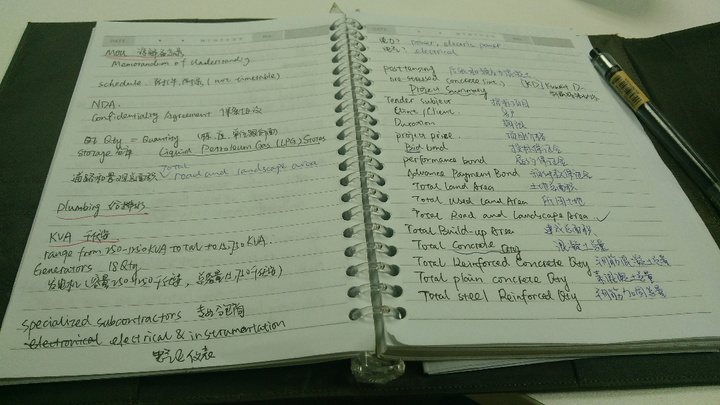 MOU 谅解备忘录
Memorandum of Understanding
schedule (not timetable)
NDA.
Confidentiality Agreement 保密协议
Qty = Quantity
Storage Liquid Petroleum Gas (LPG) Stores
道路和景观总面积 Total road and landscape area
Plumbing 给排水
KVA 千伏安
range from 250-1250KVA to total to 12,710 KVA.
Generators 18 Qty
发电机
specialized subcontractors 专业分包商
electronical electrical & instrumentation
电气仪表
电力: power, electric power
electrical
post tensioning
pre-stressed concrete
Project Summary
Tender subject 招标项目
Client / Client 业主
Duration 期限
project prize 项目
Bid bond 投标保证金
performance bond 履约保证金
Advance Payment Bond 预付款保证金
Total Land Area 土地总面积
Total used land Area 所用土地
Total Road and Landscape Area
Total Build-up Area 建筑总面积
Total Concrete Qty 混凝土总量
Total Reinforced Concrete Qty 钢筋混凝土总量
Total plain concrete Qty 素混凝土总量
Total steel Reinforced Qty 钢筋总量